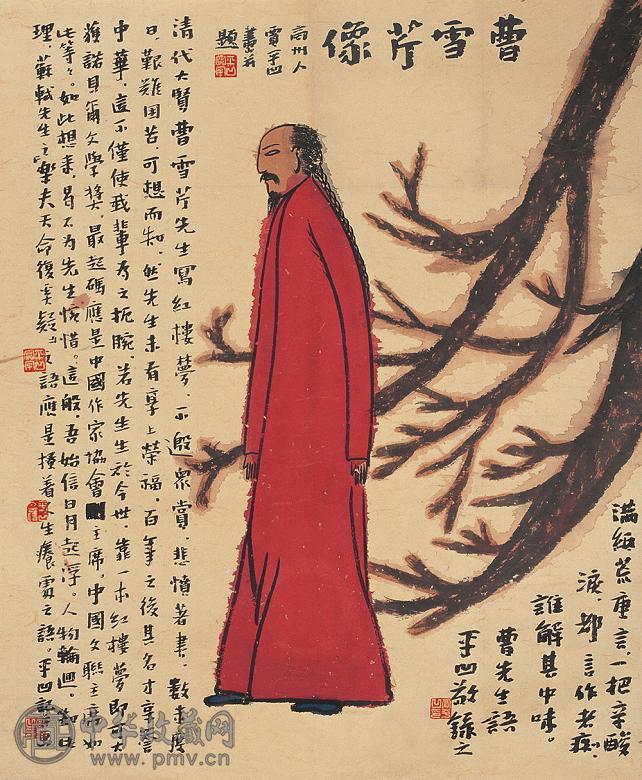 曹雪芹像
商州人
賈平凹
畫并
題
清代大賢曹雪芹先生寫紅樓夢,示殷眾賞,悲憤著書,數
日,艱難困苦,可想而知,然先生未有享上榮福,百年之後其名才享譽
中華,這不僅使我輩為之扼腕,若先生生於今世,靠一本紅樓夢即
獲諾貝爾文學獎,最起碼應是中國作家協會主席,中國文聯主席如
此等等。如此想來,曷不為先生惋惜。這般,吾始信日月起浮。人物輪迴。知
理,蘇軾先生之樂夫天命復奚疑之語應是撞着人生癢處之語。平凹
滿紙荒唐言,一把辛酸
淚,都言作者痴,
誰解其中味。
曹先生語
平凹敬錄之
中华收藏网
www.pmv.cn